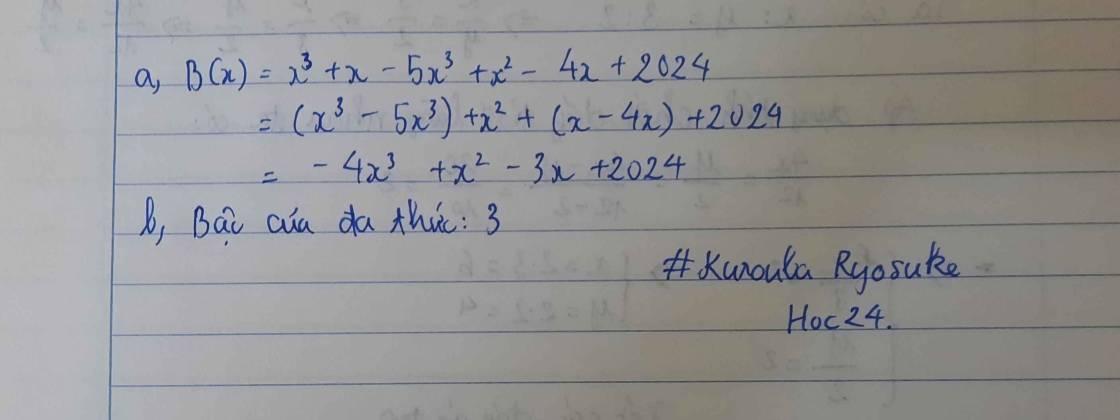 a, B(x) = x³ + x - 5x³ + x² - 4x + 2024
= (x³ - 5x³) + x² + (x - 4x) + 2024
= - 4x³ + x² - 3x + 2024
b, Bậc của đa thức: 3
#Kurouba Ryosuke
Hoc24.